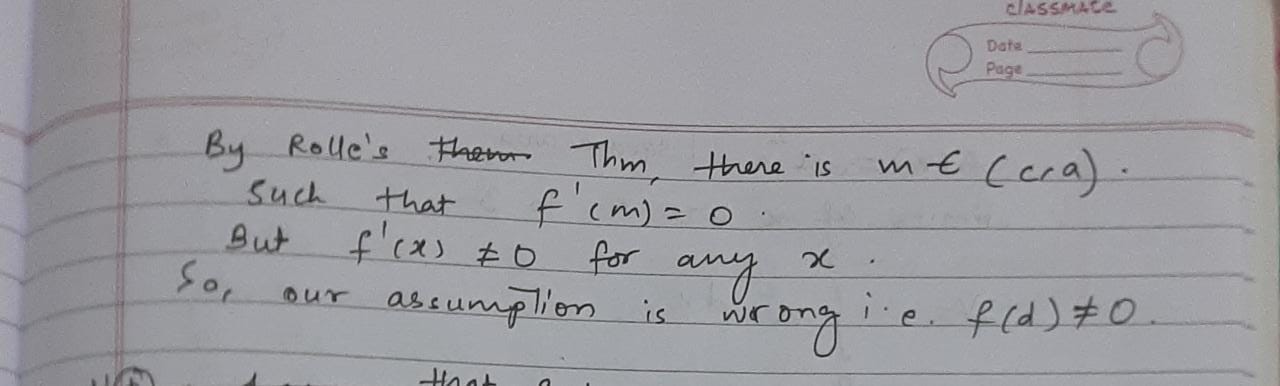 classmate
Date
Page
By Rolle's Thm, there is m ∈ (c,a).
Such that f'(m) = 0.
But f'(x) ≠ 0 for any x.
So, our assumption is wrong i.e. f(d) ≠ 0.
that